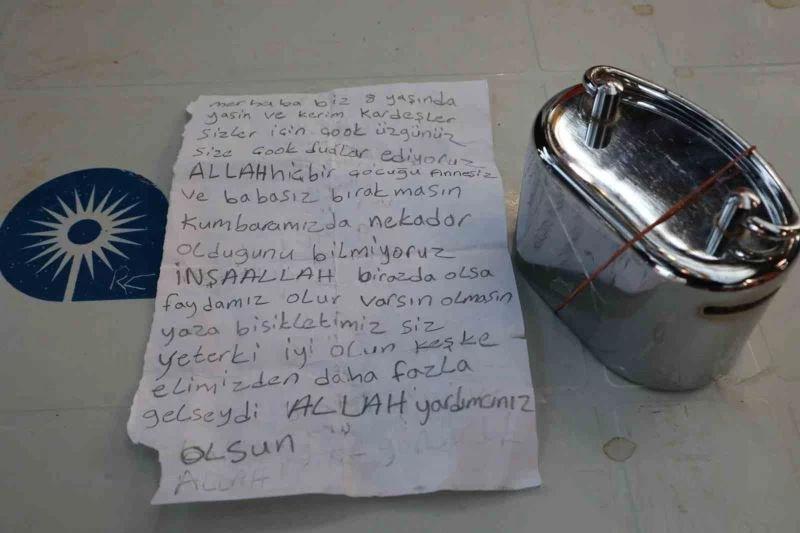 merhaba biz 8 yaşında
yasin ve kerim kardeşler
sizler için çook üzgünüz
size çook dualar ediyoruz
ALLAH hiçbir çocuğu Annesiz
ve babasız bırakmasın
Kumbaramızda nekadar
oldugunu bilmiyoruz
İNŞAALLAH birazda olsa
faydamız olur varsın olmasın
yaza bisikletimiz siz
yeterki iyi olun keşke
elimizden daha fazla
gelseydi ALLAH yardımcınız
OLSUN
ALLAH